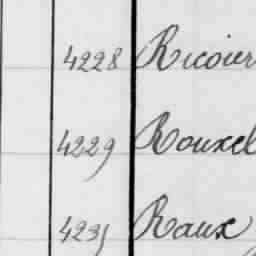 4228 Ricouer
4229 Rouxel
4231 Raux